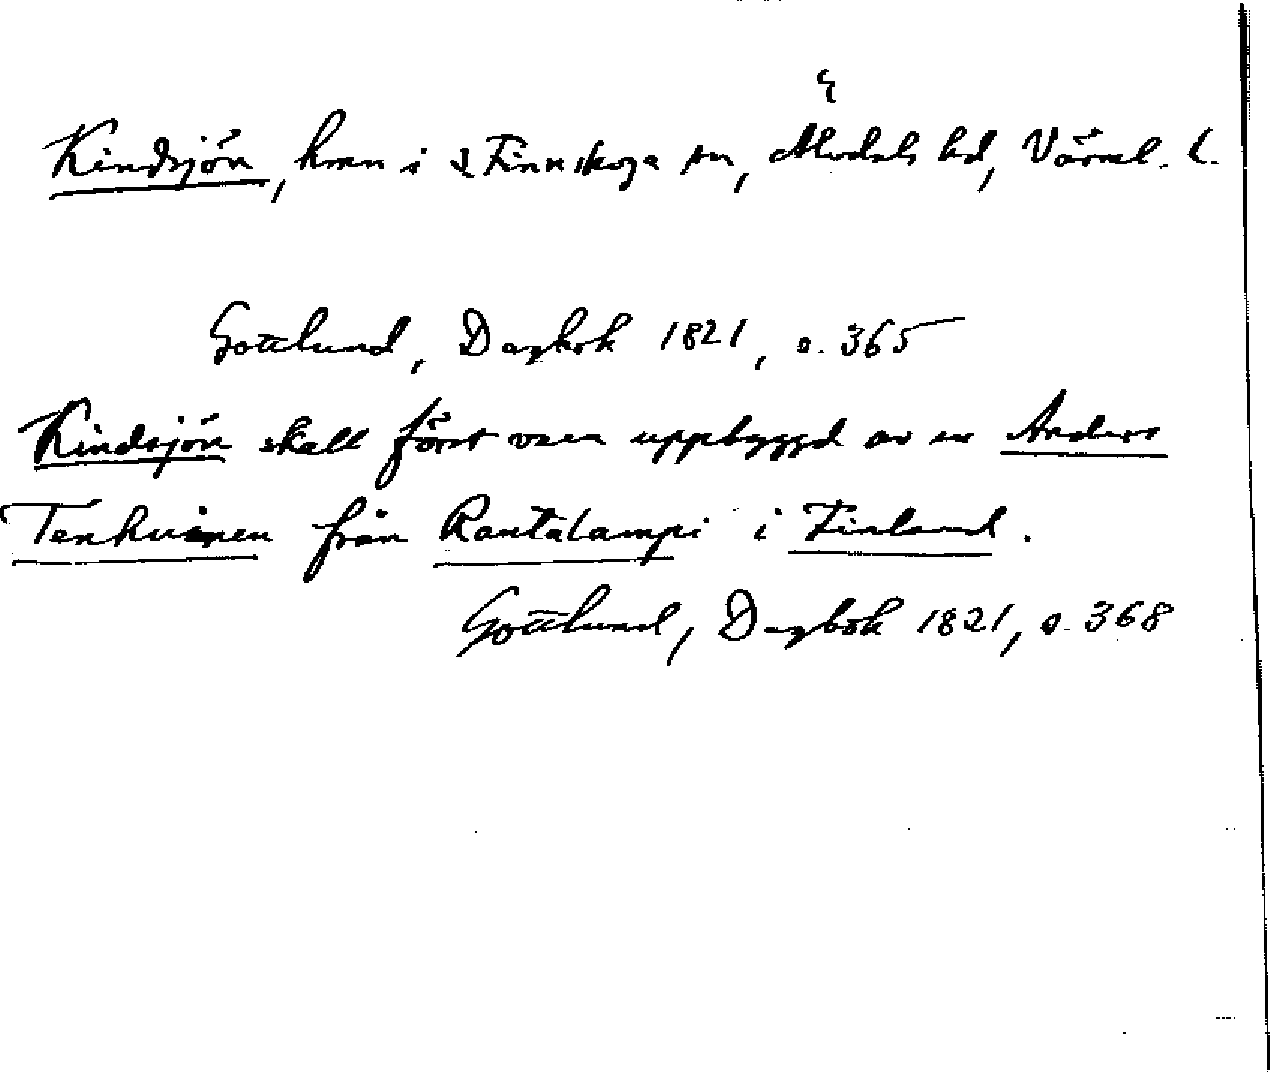 Kindsjön, hmn i S Finnskoga sn, Älvdals hd, Värml. l.
Gottlund, Dagbok 1821, s. 365
Kindsjön skall först vara uppbyggd av en Anders
Tenhuinen från Rautalampi i Finland.
Gottlund, Dagbok 1821, s. 368